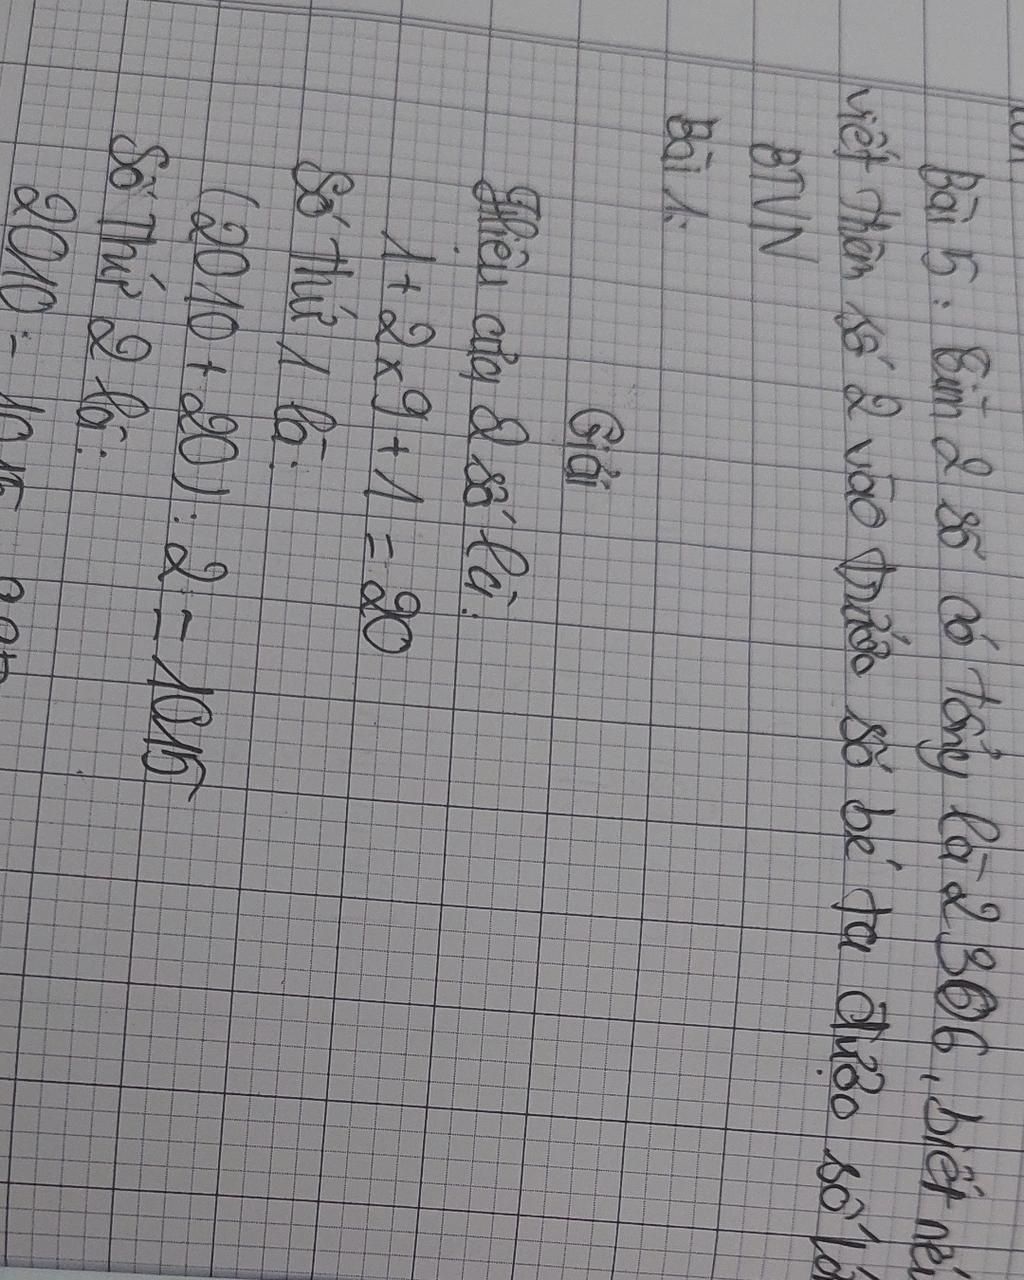 Bài 5: Tìm 2 số có tổng là 2306, biết nếu
viết thêm số 2 vào trước số bé ta được số lớ
BTVN
Bài 1:
Giải
Hiệu của 2 số là:
1 + 2 x 9 + 1 = 20
Số thứ 1 là:
(2010 + 20) : 2 = 1015
Số thứ 2 là:
2010 - 1015 = 995